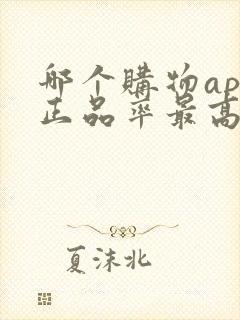 哪个購物ap
正品率最高
夏沫北